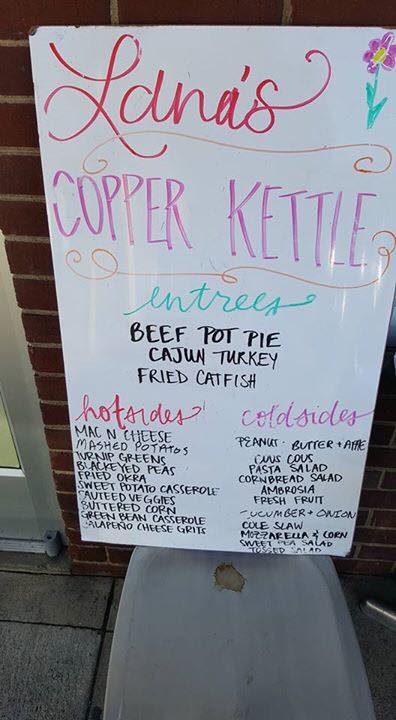 Lana's
COPPER KETTLE
entrees
BEEF POT PIE
CAJUN TURKEY
FRIED CATFISH
hot sides
MAC N CHEESE
MASHED POTATOS
TURNIP GREENS
BLACKEYED PEAS
FRIED OKRA
SWEET POTATO CASSEROLE
SAUTEED VEGGIES
BUTTERED CORN
GREEN BEAN CASSEROLE
JALAPEÑO CHEESE GRITS
cold sides
PEANUT BUTTER + APPLE
COUS COUS
PASTA SALAD
CORNBREAD SALAD
AMBROSIA
FRESH FRUIT
CUCUMBER + ONION
COLE SLAW
MOZZARELLA & CORN
SWEET PEA SALAD
TOSSED SALAD